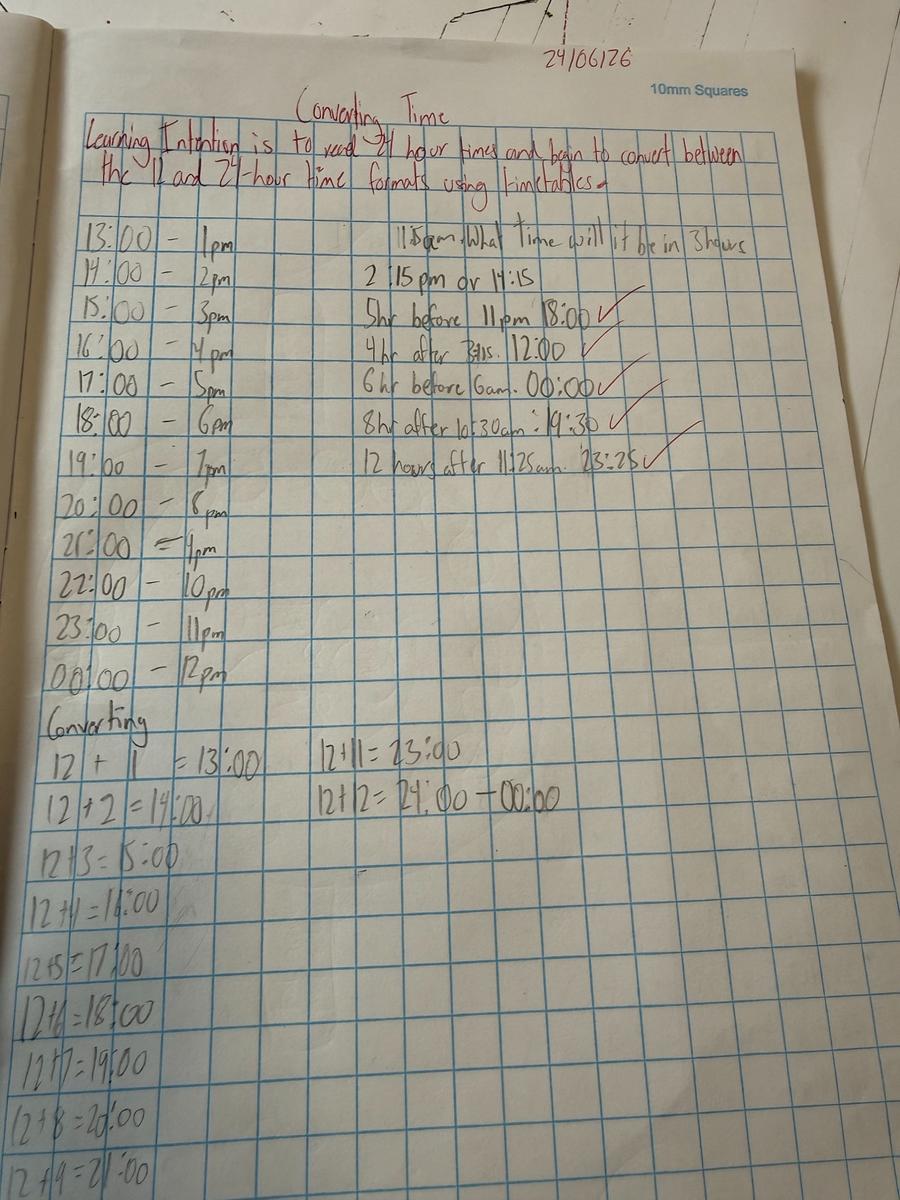 24/06/26
10mm Squares
Converting Time
Learning Intention is to read 24 hour times and begin to convert between
the 12 and 24-hour time formats using timetables.
13:00 - 1pm
14:00 - 2pm
15:00 - 3pm
16:00 - 4pm
17:00 - 5pm
18:00 - 6pm
19:00 - 7pm
20:00 - 8pm
21:00 = 9pm
22:00 - 10pm
23:00 - 11pm
00:00 - 12pm
11:15am. What Time will it be in 3 hours
2:15pm or 14:15
5hr before 11pm 18:00 ✓
4hr after 12:00 ✓
6hr before 6am. 00:00 ✓
8hr after 10:30am: 19:30 ✓
12 hours after 11:25am. 23:25 ✓
Converting
12 + 1 = 13:00
12 + 2 = 14:00
12+3=15:00
12+4=16:00
12+5=17:00
12+6=18:00
12+7=19:00
12+8=20:00
12+9=21:00
12+11=23:00
12+12=24:00 - 00:00